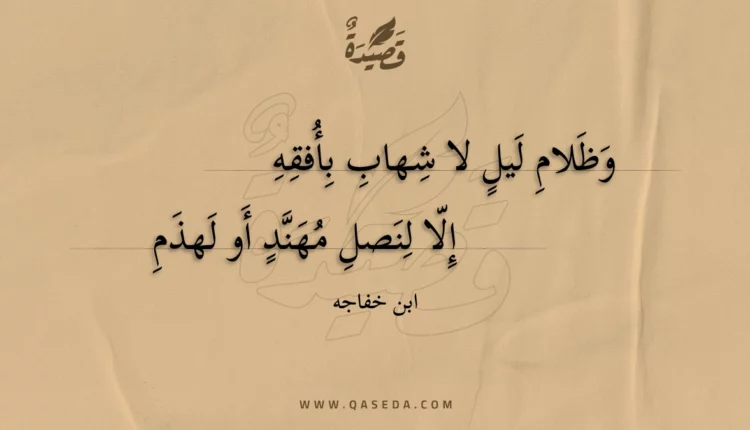 قَصِيْدَةٌ
وَظَلامِ لَيلٍ لا شِهابِ بِأُفقِهِ
إِلّا لِنَصلِ مُهَنَّدٍ أَو لَهذَمِ
ابن خفاجه
WWW.QASEDA.COM